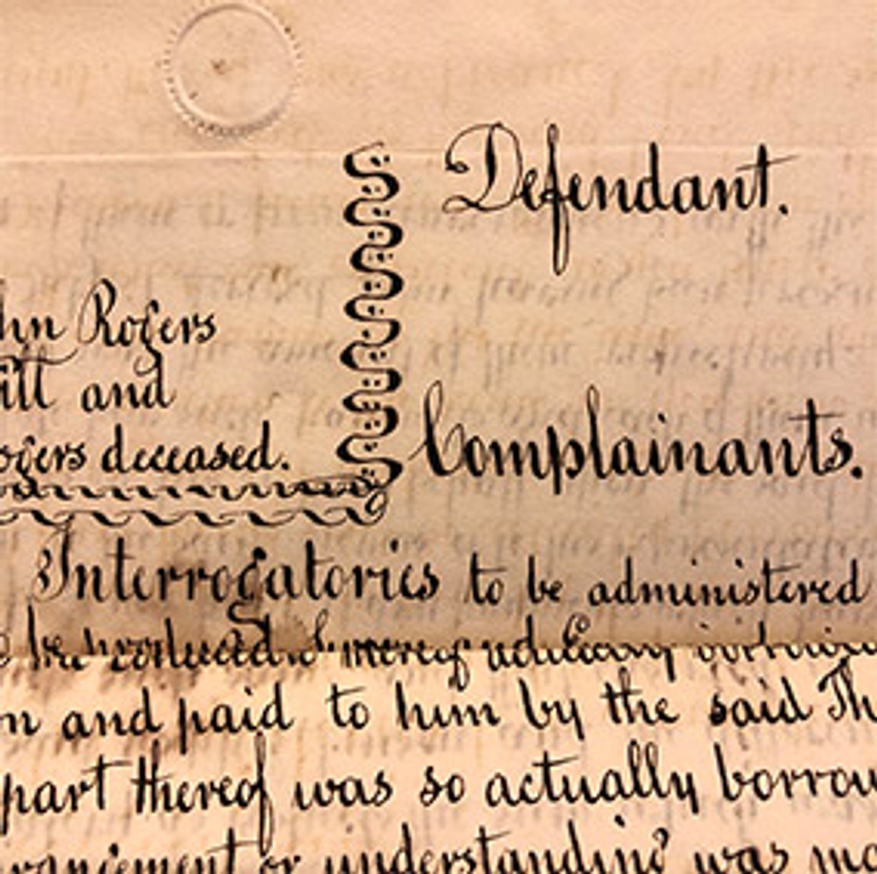 Defendant.
hn Rogers
ill and
ogers deceased.
Complainants.
Interrogatories to be administered
be
n and paid to him by the said Th
part thereof was so actually borrow
rangement or understanding was ma